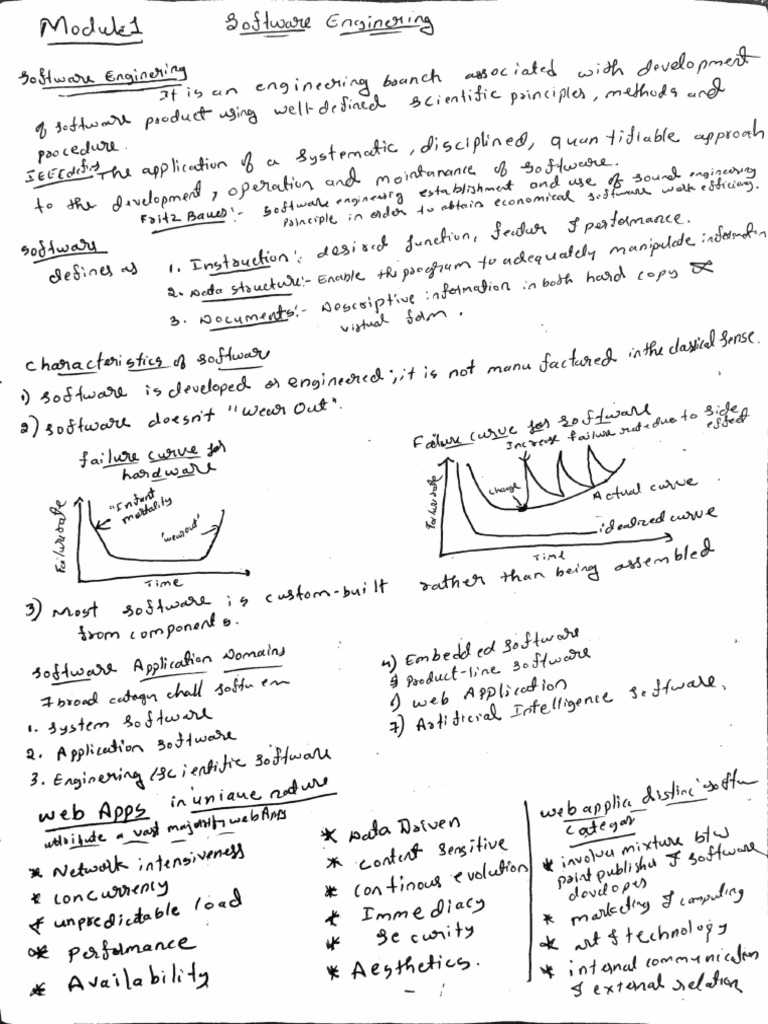 Module 1
Software Enginering
Software Enginering
It is an engineering branch associated with development
of software product using well-defined scientific principles, methods and
procedure.
IEEE defines The application of a systematic, disciplined, quantifiable approah
to the development, operation and maintanance of software.
Fritz Bauer:- Software engineering establishment and use of sound engineering
principle in order to obtain economical software work efficiency.
Software
defines as
1. Instruction: desired function, featur & performance.
2. Data structure:- Enable the program to adequately manipulate information
3. Documents:- Descriptive information in both hard copy &
virtual form.
Characteristics of softwar
1) Software is developed or engineered; it is not manufactured in the classical sense.
2) Software doesn't "Wear Out".
failure curve for
hardware
Failurerate
"Infant
mortality"
"wearout"
Time
Failure curve for software
Increase failure rate due to side
effect
Failurerate
change
Actual curve
idealized curve
Time
3) Most software is custom-built rather than being assembled
from components.
Software Application Domains
7 broad catagry chall softu em
1. System software
2. Application software
3. Enginering /Scientific software
4) Embedded software
5) Product-line software
6) Web Application
7) Artificial Intelligence software.
Web Apps in uniaue nature
attribute a vast majority webApps
* Network intensiveness
* Concurrency
* unpredictable load
* Performance
* Availability
* Data Driven
* Content Sensitive
* Continous evolution
* Immediacy
* Security
* Aesthetics.
web applica distinc softw
Categar
* involve mixture b/w
print publisher & software
developer
* marketing & computing
* art & technology
* internal communication
& external relation